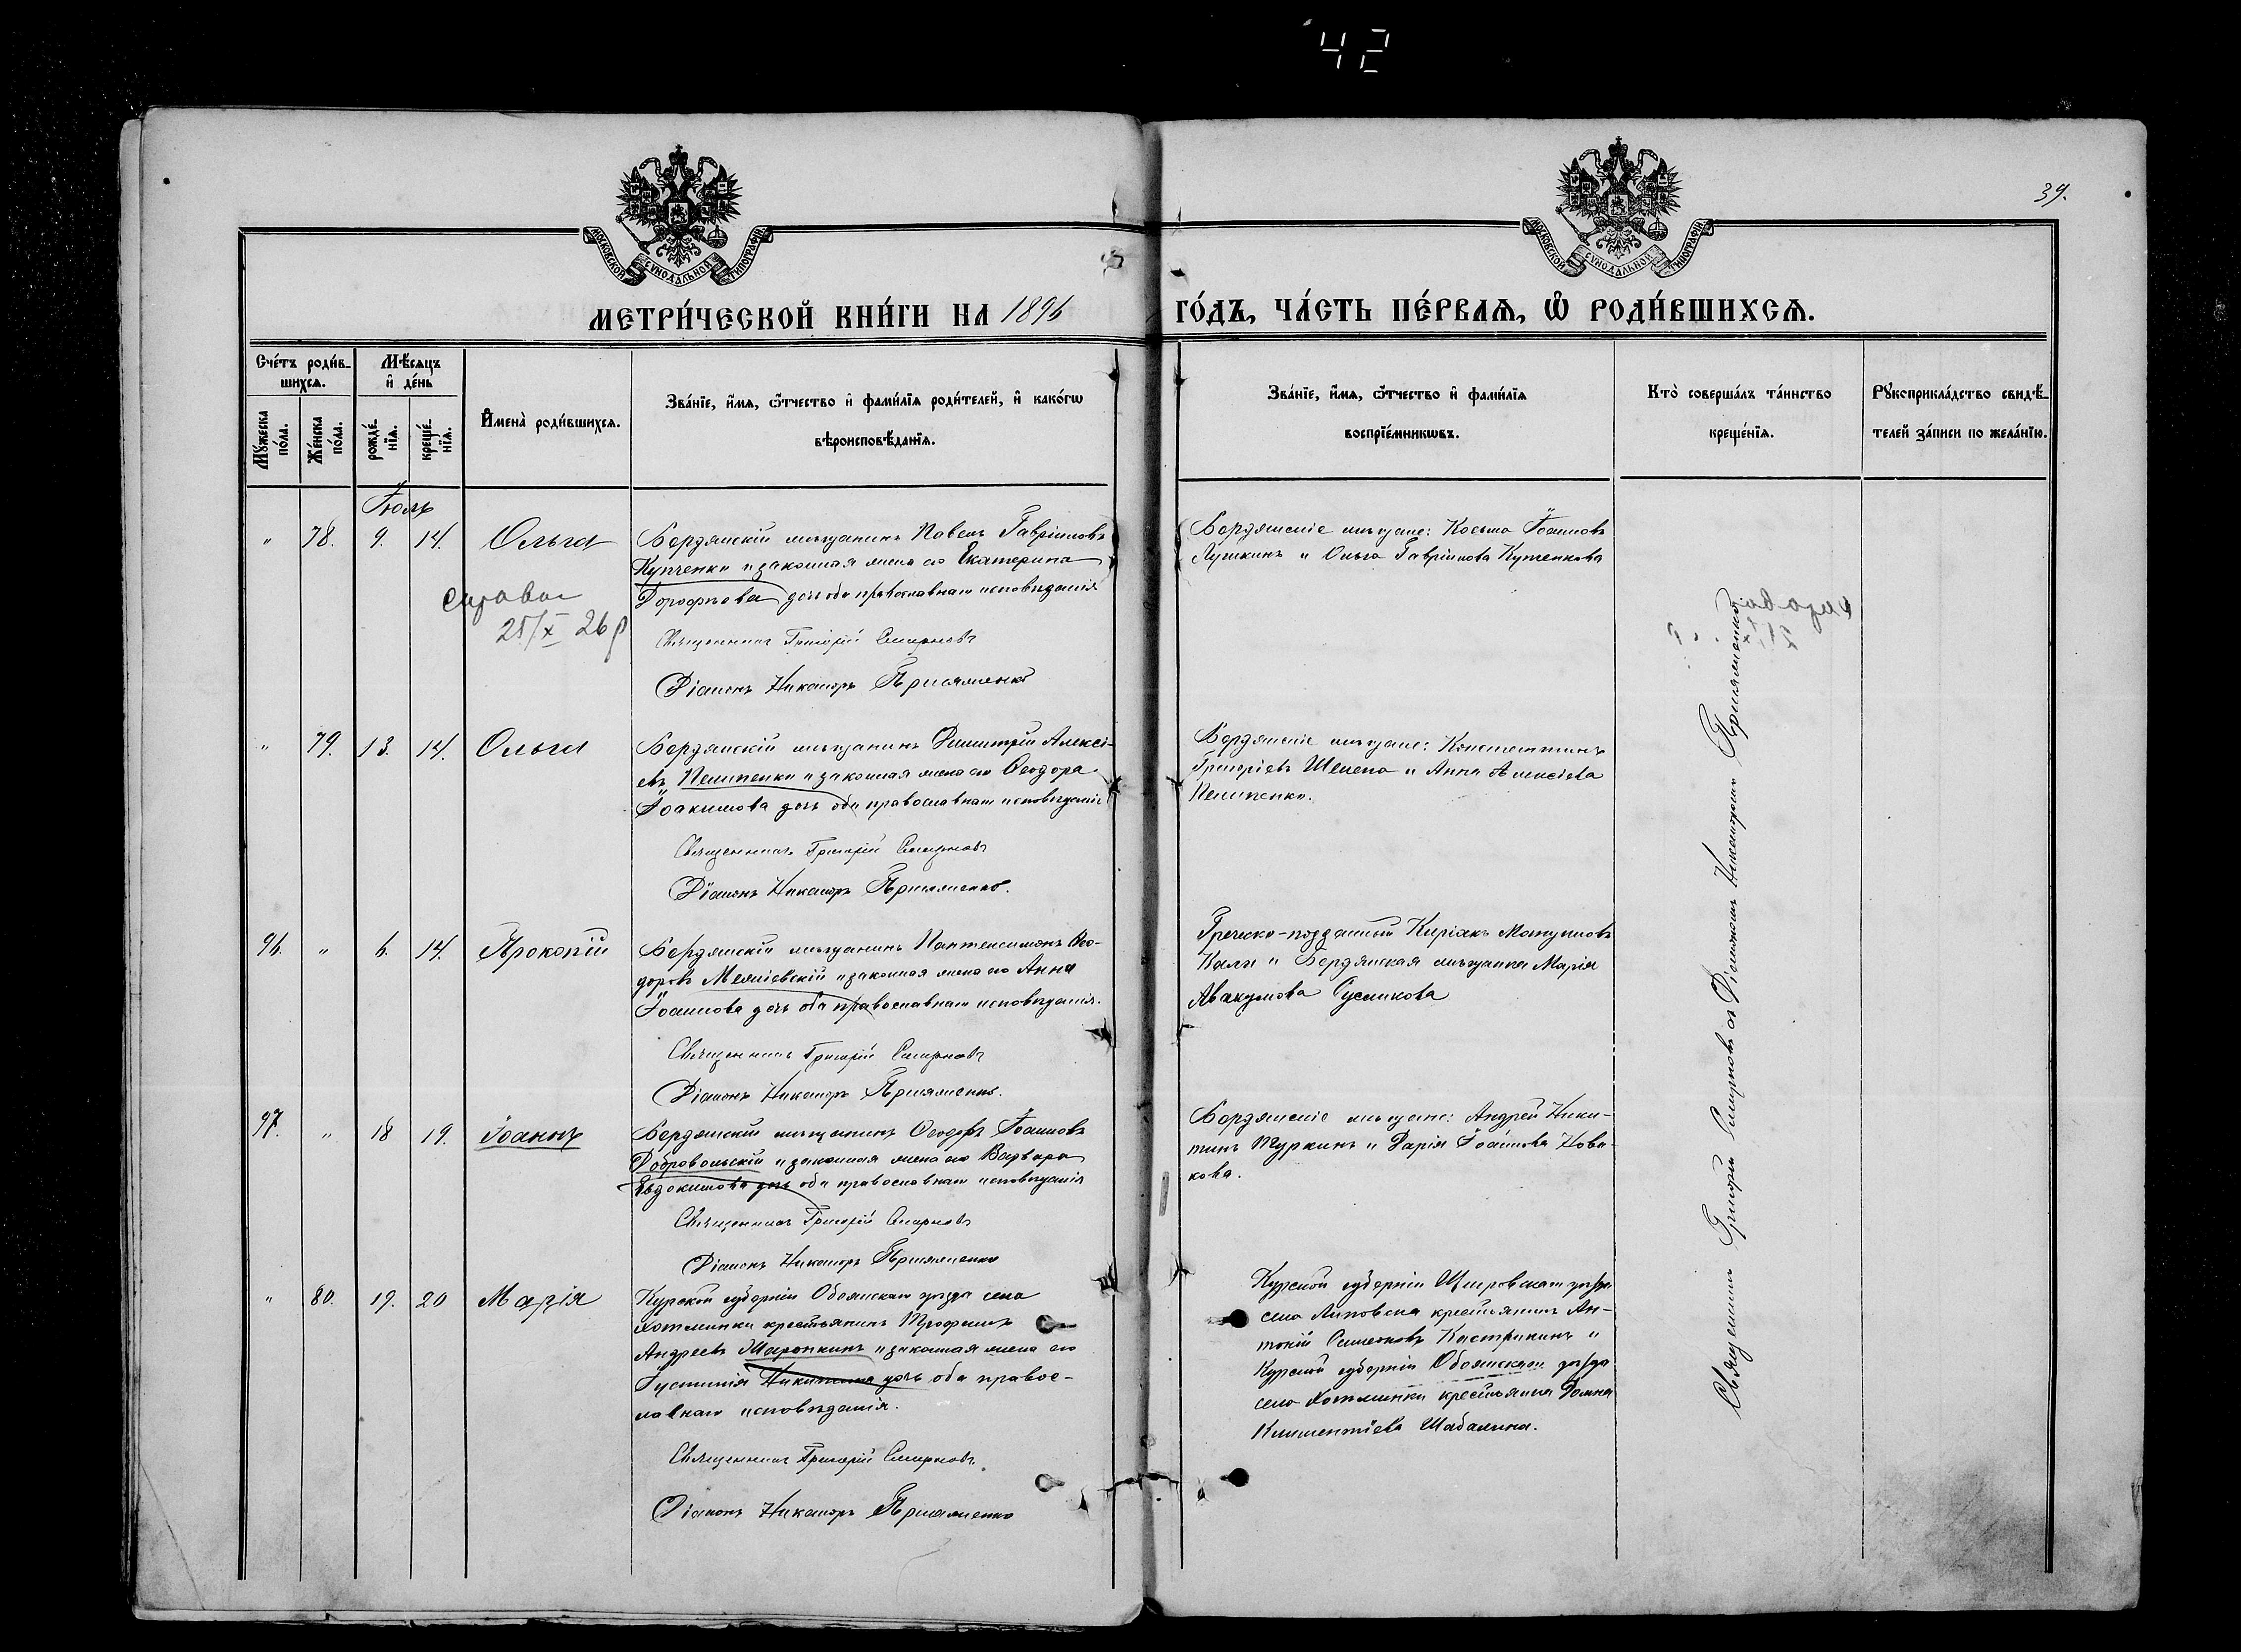 42
39.
МОСКОВСКОЙ СУНОДАЛЬНОЙ ТИПОГРАФІИ
МОСКОВСКОЙ СУНОДАЛЬНОЙ ТИПОГРАФІИ
МЕТРИ́ЧЕСКОЙ КНИ́ГИ НА 1896 ГО́ДЪ, ЧА́СТЬ ПЕ́РВАѦ, Ѡ҆ РОДИ́ВШИХСѦ.
Сче́тъ роди́в-
шихсѧ.
Мꙋ́жеска
по́ла.
Же́нска
по́ла.
Мѣ́сѧцъ
и҆ де́нь
рожде́-
нїѧ.
креще́-
нїѧ.
И҆мена̀ роди́вшихсѧ.
Зва́нїе, и҆́мѧ, ѻ҆́тчество и҆ фами́лїѧ роди́телей, и҆ како́гѡ
вѣроисповѣ́данїѧ.
Зва́нїе, и҆́мѧ, ѻ҆́тчество и҆ фами́лїѧ
воспрїе́мникѡвъ.
Кто̀ соверша́лъ та́инство
креще́нїѧ.
Рꙋкоприкла́дство свидѣ́-
телей за́писи по жела́нїю.
Іюль
" 78. 9. 14. Ольга
Бердянскій мѣщанинъ Павелъ Гавріиловъ
Купченко и законная жена его Екатерина
Дорофѣева дочь оба православнаго исповѣданія
Священникъ Григорій Смирновъ
Діаконъ Никаноръ
Бердянскіе мѣщане: Косьма Іоанновъ
Лушкинъ и Ольга Гавріилова Купченкова
справка
25/X 26 р
" 79. 13. 14. Ольга
Бердянскій мѣщанинъ Димитрій Алексі-
евъ Пелипенко и законная жена его Ѳеодора
Іоакимова дочь оба православнаго исповѣданія
Священникъ Григорій Смирновъ
Діаконъ Никаноръ
Бердянскіе мѣщане: Константинъ
Григоріевъ Шемена и Анна Алексіева
Пелипенко.
96. " 6. 14. Прокопій
Бердянскій мѣщанинъ Пантелеимонъ Ѳео-
доровъ и законная жена его Анна
Іоаннова дочь оба православнаго исповѣданія.
Священникъ Григорій Смирновъ
Діаконъ Никаноръ
Греческо-подданный Киріакъ
и Бердянская мѣщанка Марія
Авакумова Сусликова
97. " 18 19. Іоаннъ
Бердянскій мѣщанинъ Ѳеодоръ Іоанновъ
Добровольскій и законная жена его Варвара
Евдокимова дочь оба православнаго исповѣданія
Священникъ Григорій Смирновъ
Діаконъ Никаноръ
Бердянскіе мѣщане: Андрей Ники-
тинъ Туркинъ и Дарія Іоаннова Нова-
кова.
" 80. 19. 20 Марія
Курской губерніи Обоянскаго уѣзда села
крестьянинъ Трофимъ
Андреевъ Шаропкинъ и законная жена его
Іустинія Никитина дочь оба правос-
лавнаго исповѣданія.
Священникъ Григорій Смирновъ.
Діаконъ Никаноръ
Курской губерніи Щигровскаго уѣзда
села Липовска крестьянинъ Ан-
тоній Симеоновъ Кастрикинъ и
Курской губерніи Обоянскаго уѣзда
села крестьянка Домна
Климентіева Шабалина.
Священникъ Григорій Смирновъ съ Діакономъ Никаноромъ